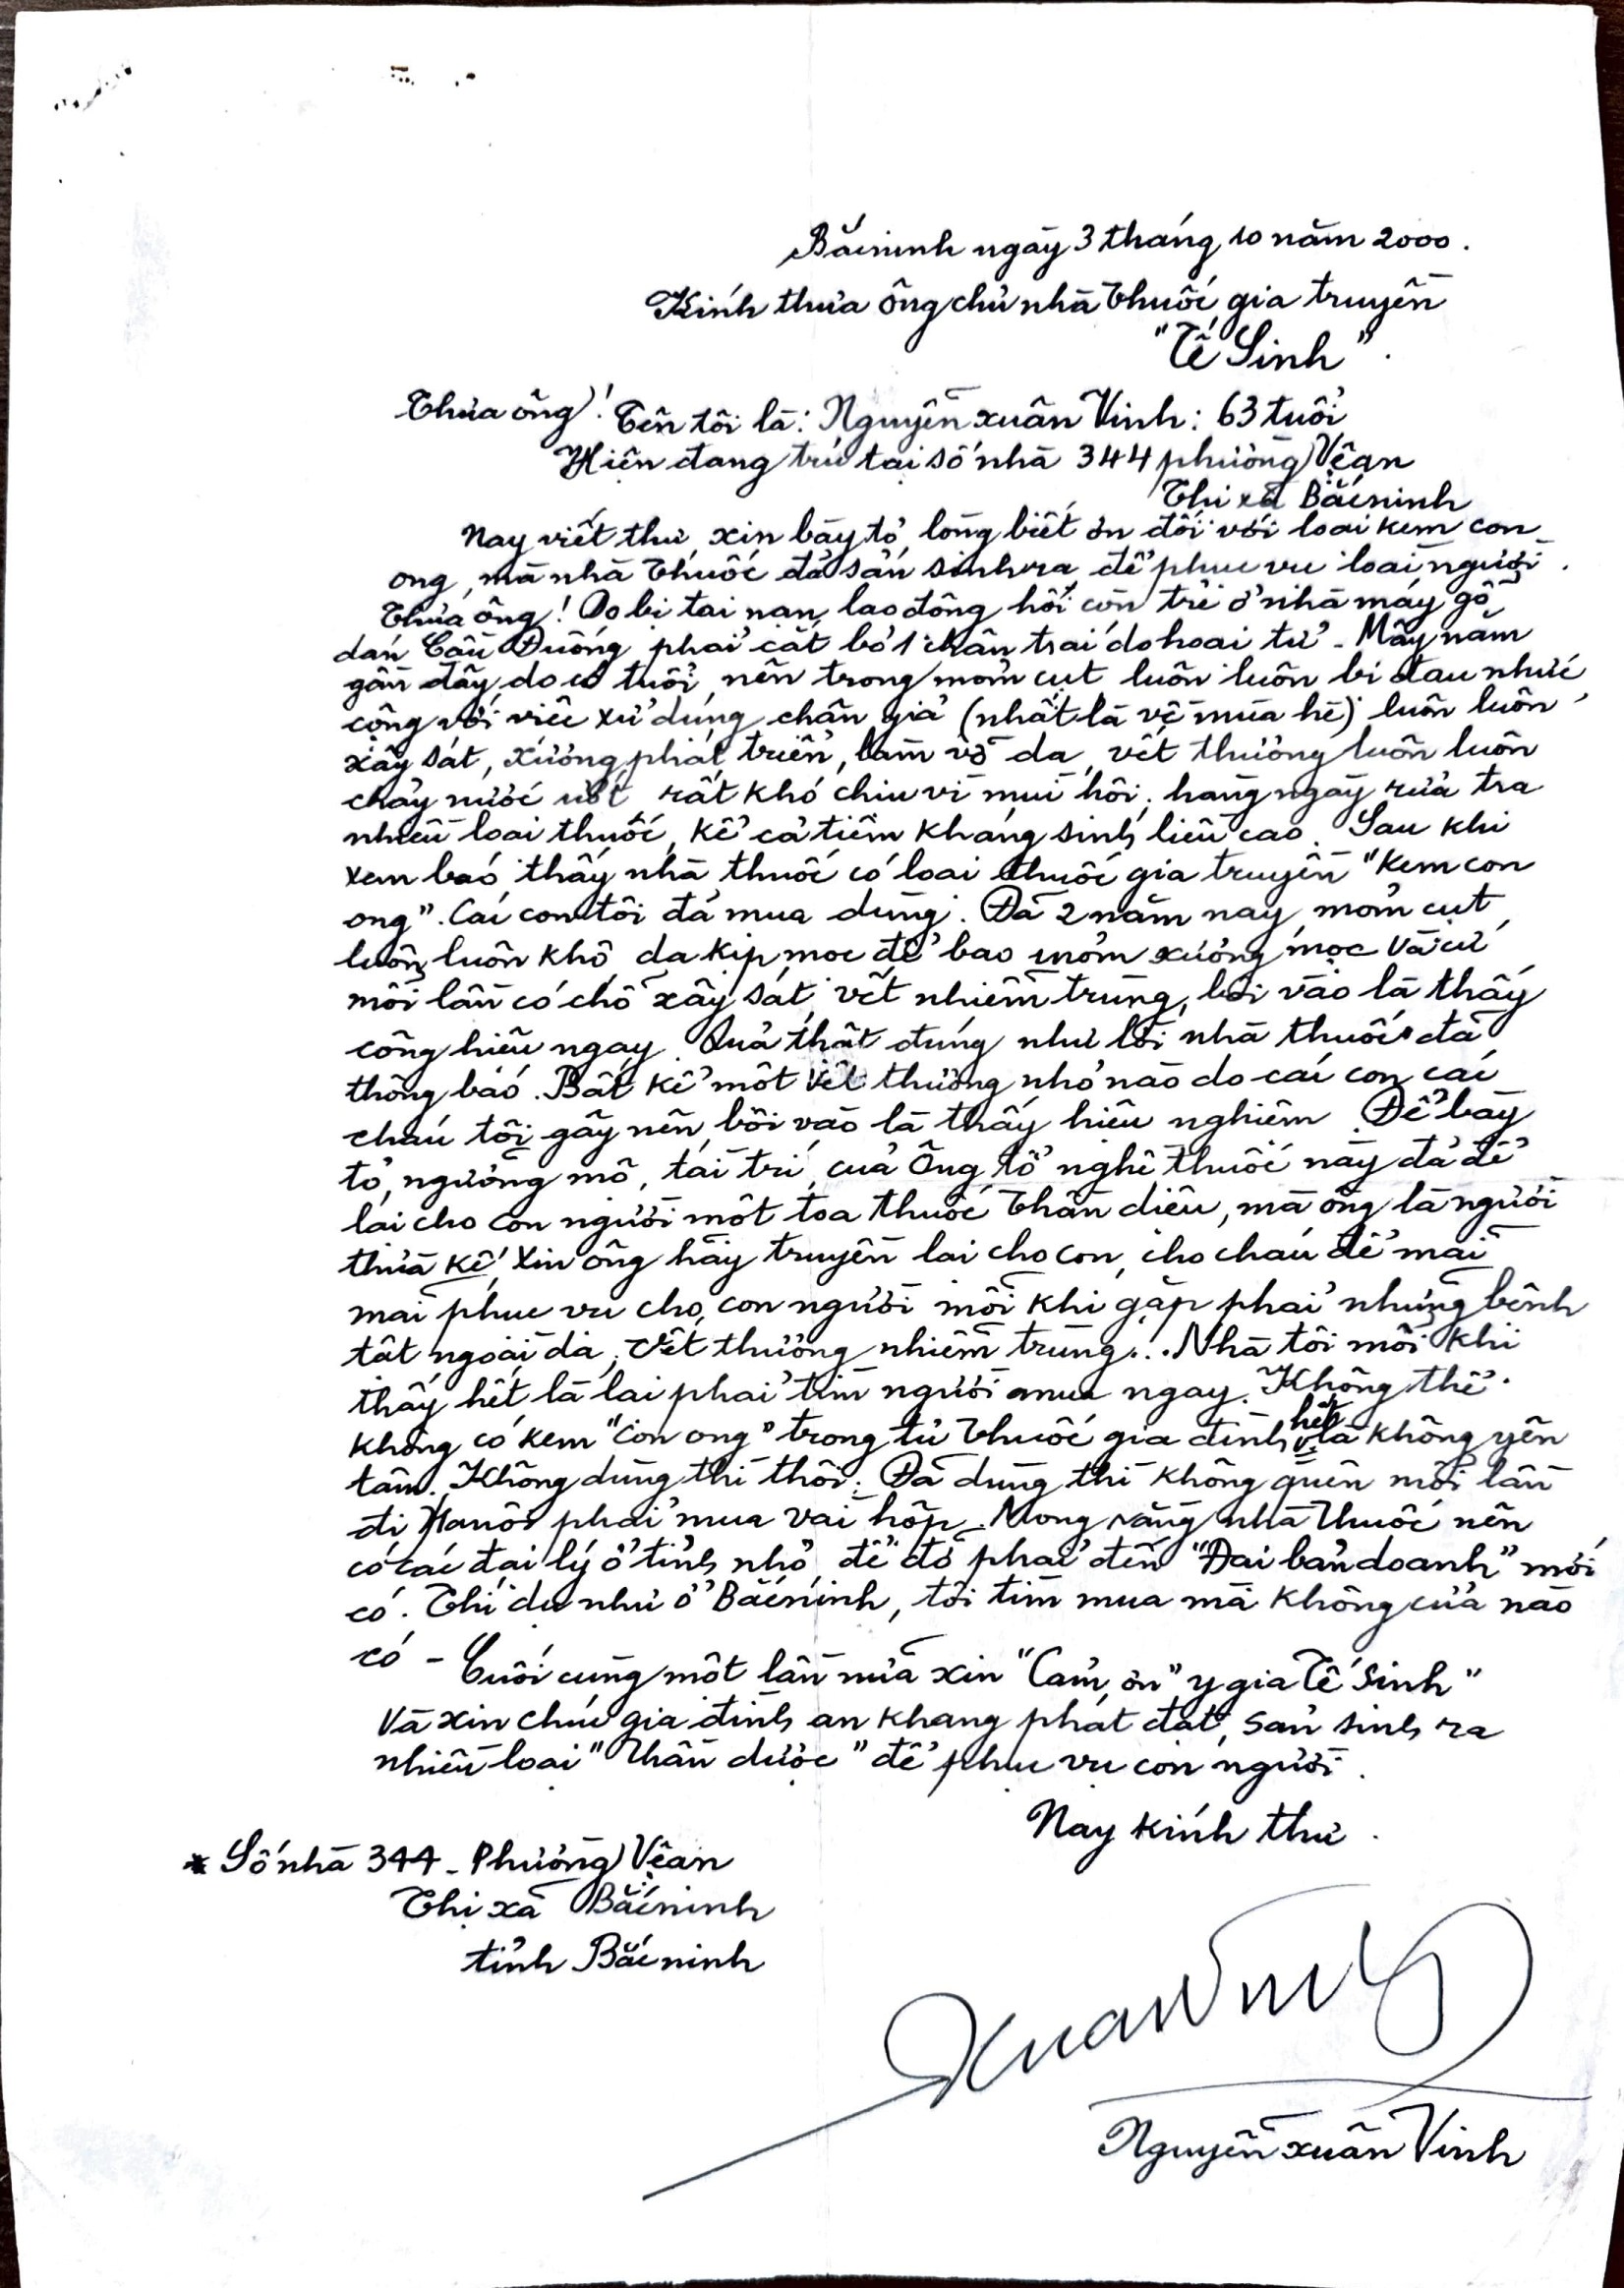 Bắc ninh ngày 3 tháng 10 năm 2000.
Kính thưa ông chủ nhà thuốc gia truyền
"Tế Sinh".
Thưa ông! Tên tôi là: Nguyễn xuân Vinh: 63 tuổi
Hiện đang trú tại số nhà 344 phường Vệ an
Thị xã Bắc ninh
Nay viết thư xin bày tỏ lòng biết ơn đối với loại kem con
ong, mà nhà thuốc đã sản sinh ra để phục vụ loài người.
Thưa ông! Do bị tai nạn lao động hồi còn trẻ ở nhà máy gỗ
dán Cầu Đuống phải cắt bỏ 1 chân trái do hoại tử - Mấy năm
gần đây do có tuổi, nên trong mỏm cụt luôn luôn bị đau nhức
cộng với việc xử dụng chân giả (nhất là về mùa hè) luôn luôn
xây sát, xương phát triển, làm vỡ da, vết thương luôn luôn
chảy nước ướt, rất khó chịu vì mùi hôi, hàng ngày rửa tra
nhiều loại thuốc, kể cả tiêm kháng sinh liều cao. Sau khi
xem báo thấy nhà thuốc có loại thuốc gia truyền "Kem con
ong". Các con tôi đã mua dùng. Đã 2 năm nay mỏm cụt
luôn luôn khô da kịp mọc để bao mỏm xương mọc và cứ
mỗi lần có chỗ xây sát, vết nhiễm trùng, bôi vào là thấy
công hiệu ngay. Quả thật đúng như lời nhà thuốc đã
thông báo. Bất kể một vết thương nhỏ nào do các con các
cháu tôi gây nên, bôi vào là thấy hiệu nghiệm. Để bày
tỏ, ngưỡng mộ, tài trí của Ông tổ nghề thuốc này đã để
lại cho con người một toa thuốc thần diệu, mà ông là người
thừa kế, Xin ông hãy truyền lại cho con, cho cháu để mãi
mãi phục vụ cho con người mỗi khi gặp phải những bệnh
tật ngoài da, vết thương nhiễm trùng... Nhà tôi mỗi khi
thấy hết là lại phải tìm người mua ngay. Không thể.
không có kem "con ong" trong tủ thuốc gia đình hết là không yên
tâm. Không dùng thì thôi. Đã dùng thì không quên mỗi lần
đi Hanôi phải mua vài hộp. Mong rằng nhà thuốc nên
có các đại lý ở tỉnh nhỏ, để đỡ phải đến "Đại bản doanh" mới
có. Thí dụ như ở Bắc ninh, tôi tìm mua mà không cửa nào
có - Cuối cùng một lần nữa xin "Cảm ơn" y gia Tế Sinh"
Và xin chúc gia đình an khang phát đạt, sản sinh ra
nhiều loại "thần dược" để phục vụ con người.
Nay kính thư.
* Số nhà 344 - Phường Vệ an
Thị xã Bắc ninh
tỉnh Bắc ninh
Xuân Vinh
Nguyễn xuân Vinh